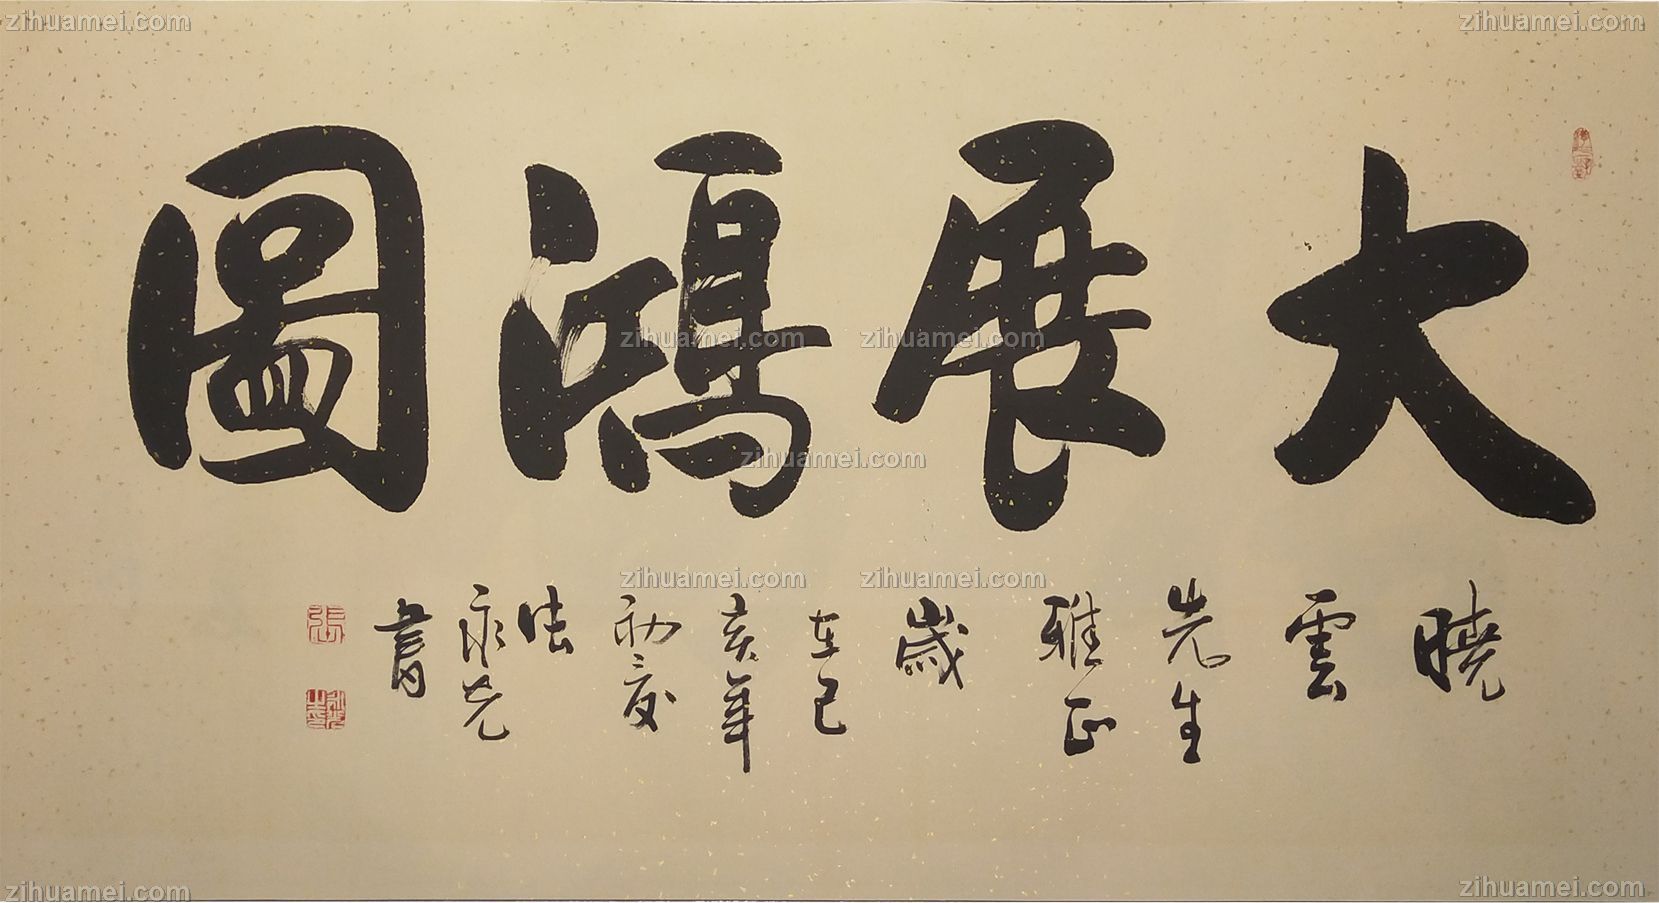 大展鴻圖
曉
雲
先生
雅正
歲
在己
亥年
初夏
張
永光
書
zihuamei.com
zihuamei.com
zihuamei.com
zihuamei.com
zihuamei.com
zihuamei.com
zihuamei.com
zihuamei.com
zihuamei.com